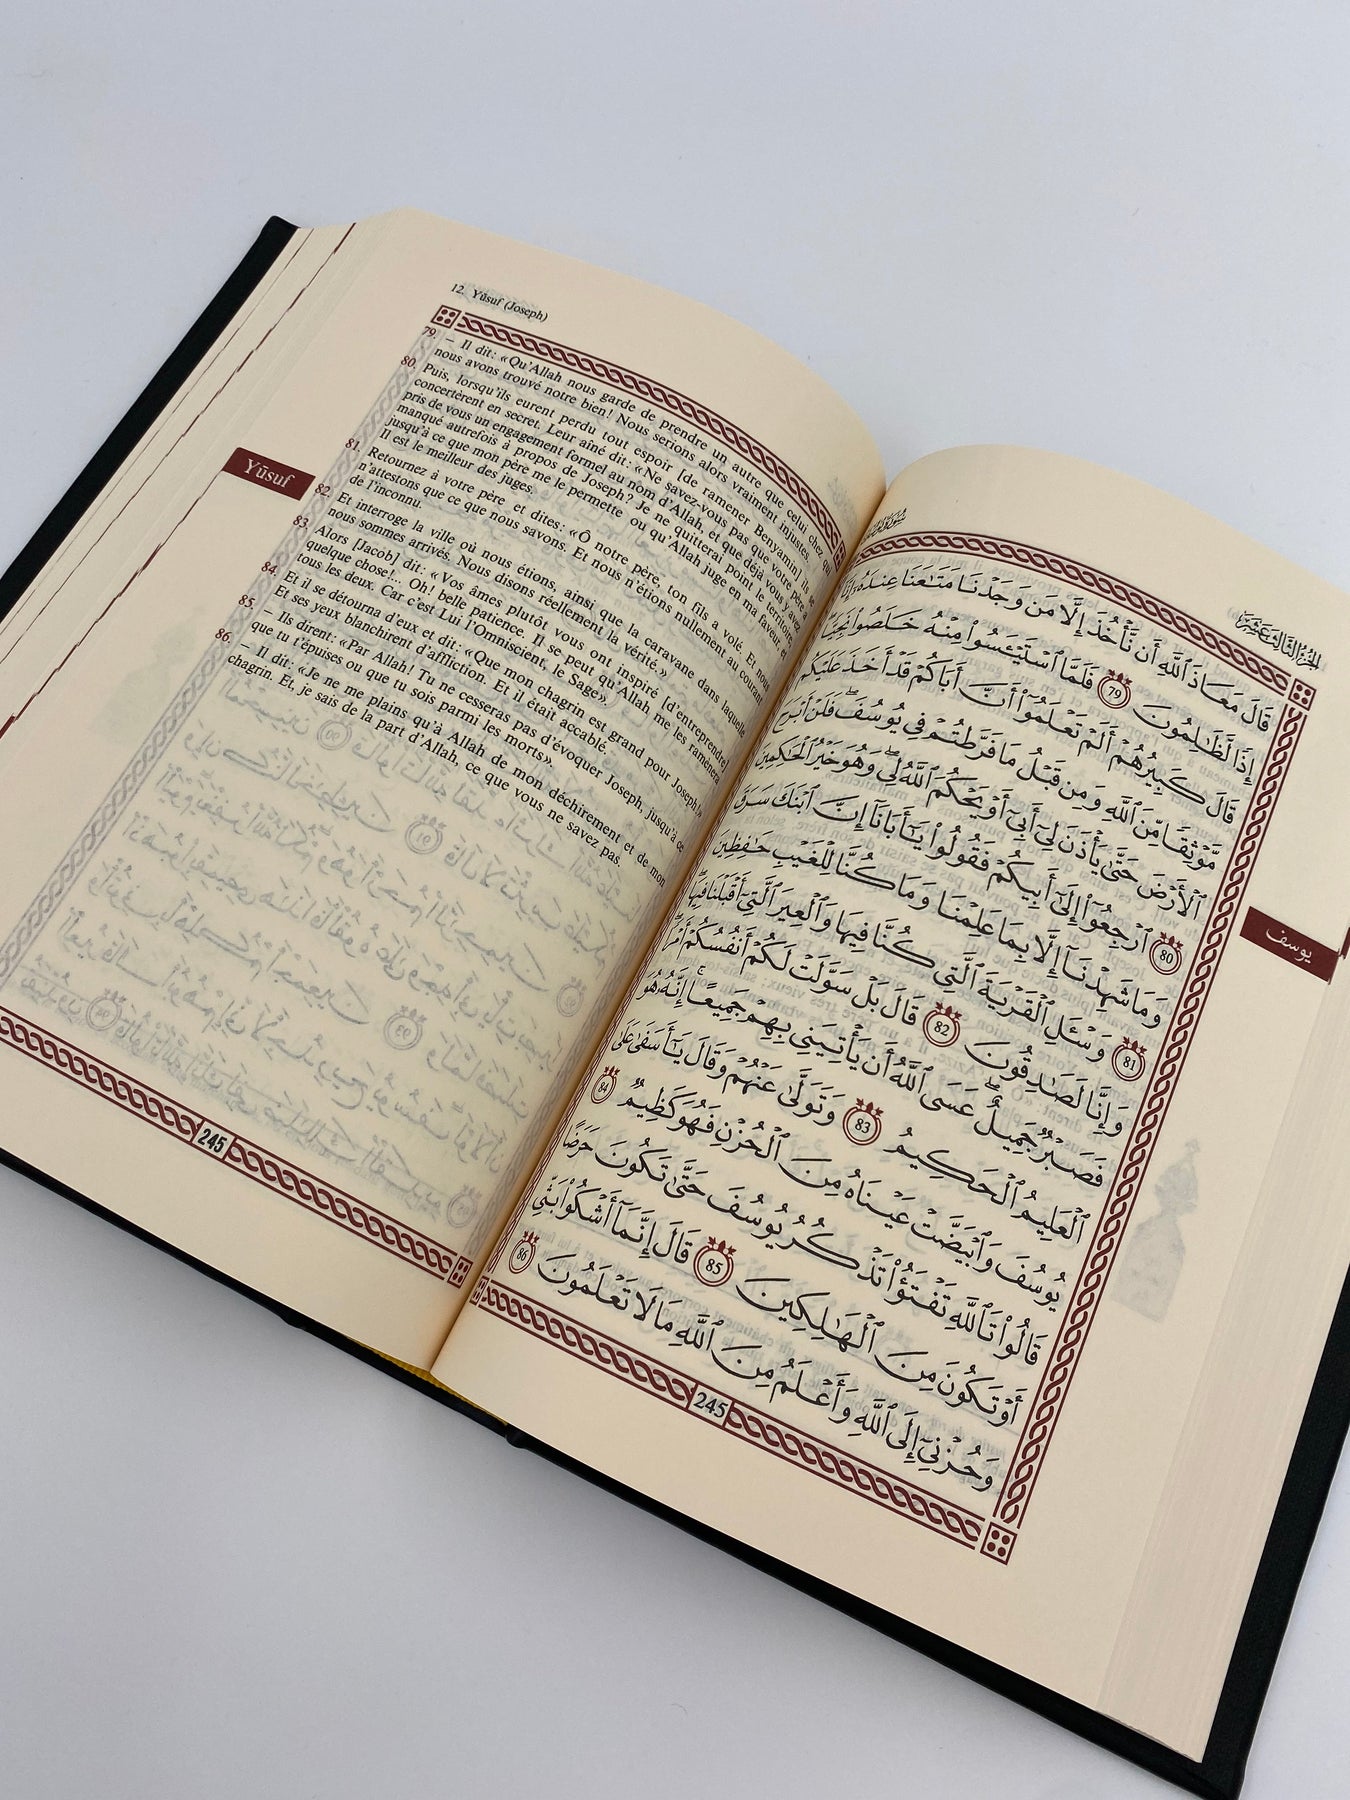 12. Yūsuf (Joseph)
79. – Il dit: «Qu'Allah nous garde de prendre un autre que celui chez qui
nous avons trouvé notre bien! Nous serions alors vraiment injustes.
80. Puis, lorsqu'ils eurent perdu tout espoir [de ramener Benyamin] ils se
concertèrent en secret. Leur aîné dit: «Ne savez-vous pas que votre père a
pris de vous un engagement formel au nom d'Allah, et que déjà vous y avez
manqué autrefois à propos de Joseph? Je ne quitterai point le territoire,
jusqu'à ce que mon père me le permette ou qu'Allah juge en ma faveur, et
Il est le meilleur des juges.
81. Retournez à votre père et dites: «Ô notre père, ton fils a volé. Et nous
n'attestons que ce que nous savons. Et nous n'étions nullement au courant
de l'inconnu.
82. Et interroge la ville où nous étions, ainsi que la caravane dans laquelle
nous sommes arrivés. Nous disons réellement la vérité.»
83. Alors [Jacob] dit: «Vos âmes plutôt vous ont inspiré [d'entreprendre]
quelque chose!... Oh! belle patience. Il se peut qu'Allah me les ramènera
tous les deux. Car c'est Lui l'Omniscient, le Sage».
84. Et il se détourna d'eux et dit: «Que mon chagrin est grand pour Joseph!»
Et ses yeux blanchirent d'affliction. Et il était accablé.
85. – Ils dirent: «Par Allah! Tu ne cesseras pas d'évoquer Joseph, jusqu'à ce
que tu t'épuises ou que tu sois parmi les morts».
86. – Il dit: «Je ne me plains qu'à Allah de mon déchirement et de mon
chagrin. Et, je sais de la part d'Allah, ce que vous ne savez pas.
Yūsuf
245
الجزء الثالث عشر
قَالَ مَعَاذَ ٱللَّهِ أَن نَّأْخُذَ إِلَّا مَن وَجَدْنَا مَتَٰعَنَا عِندَهُۥٓ إِنَّآ
إِذًا لَّظَٰلِمُونَ 79 فَلَمَّا ٱسْتَيْـَٔسُوا۟ مِنْهُ خَلَصُوا۟ نَجِيًّا
قَالَ كَبِيرُهُمْ أَلَمْ تَعْلَمُوٓا۟ أَنَّ أَبَاكُمْ قَدْ أَخَذَ عَلَيْكُم
مَّوْثِقًا مِّنَ ٱللَّهِ وَمِن قَبْلُ مَا فَرَّطتُمْ فِى يُوسُفَ ۖ فَلَنْ أَبْرَحَ
ٱلْأَرْضَ حَتَّىٰ يَأْذَنَ لِىٓ أَبِىٓ أَوْ يَحْكُمَ ٱللَّهُ لِى ۖ وَهُوَ خَيْرُ ٱلْحَٰكِمِينَ
80 ٱرْجِعُوٓا۟ إِلَىٰٓ أَبِيكُمْ فَقُولُوا۟ يَٰٓأَبَانَآ إِنَّ ٱبْنَكَ سَرَقَ
وَمَا شَهِدْنَآ إِلَّا بِمَا عَلِمْنَا وَمَا كُنَّا لِلْغَيْبِ حَٰفِظِينَ
81 وَسْـَٔلِ ٱلْقَرْيَةَ ٱلَّتِى كُنَّا فِيهَا وَٱلْعِيرَ ٱلَّتِىٓ أَقْبَلْنَا فِيهَا ۖ
وَإِنَّا لَصَٰدِقُونَ 82 قَالَ بَلْ سَوَّلَتْ لَكُمْ أَنفُسُكُمْ أَمْرًا ۖ
فَصَبْرٌ جَمِيلٌ ۖ عَسَى ٱللَّهُ أَن يَأْتِيَنِى بِهِمْ جَمِيعًا ۚ إِنَّهُۥ هُوَ
ٱلْعَلِيمُ ٱلْحَكِيمُ 83 وَتَوَلَّىٰ عَنْهُمْ وَقَالَ يَٰٓأَسَفَىٰ عَلَىٰ
يُوسُفَ وَٱبْيَضَّتْ عَيْنَاهُ مِنَ ٱلْحُزْنِ فَهُوَ كَظِيمٌ 84
قَالُوا۟ تَٱللَّهِ تَفْتَؤُا۟ تَذْكُرُ يُوسُفَ حَتَّىٰ تَكُونَ حَرَضًا
أَوْ تَكُونَ مِنَ ٱلْهَٰلِكِينَ 85 قَالَ إِنَّمَآ أَشْكُوا۟ بَثِّى
وَحُزْنِىٓ إِلَى ٱللَّهِ وَأَعْلَمُ مِنَ ٱللَّهِ مَا لَا تَعْلَمُونَ 86
يوسف
245